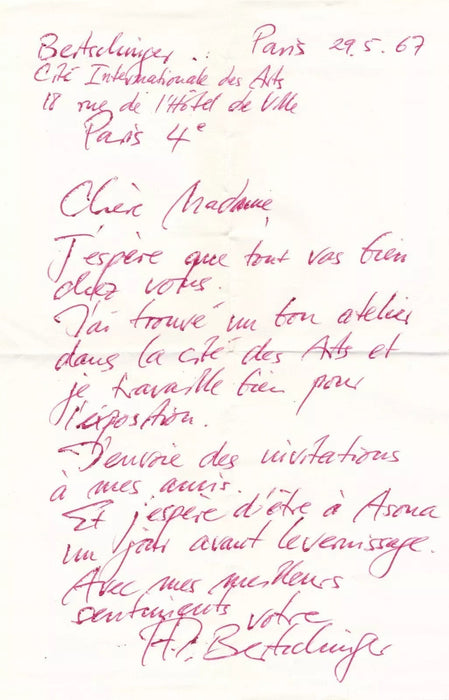 Bertschinger . Paris 29.5.67
Cité Internationale des Arts
18 rue de l'Hôtel de Ville
Paris 4e
Chère Madame,
J'espère que tout vas bien
chez vous.
J'ai trouvé un bon atelier
dans la cité des Arts et
je travaille bien pour
l'éxposition.
J'envoie des invitations
à mes amis.
Et j'espère d'être à Asona
un jour avant le vernissage.
Avec mes meilleurs
sentiments votre
H.P. Bertschinger